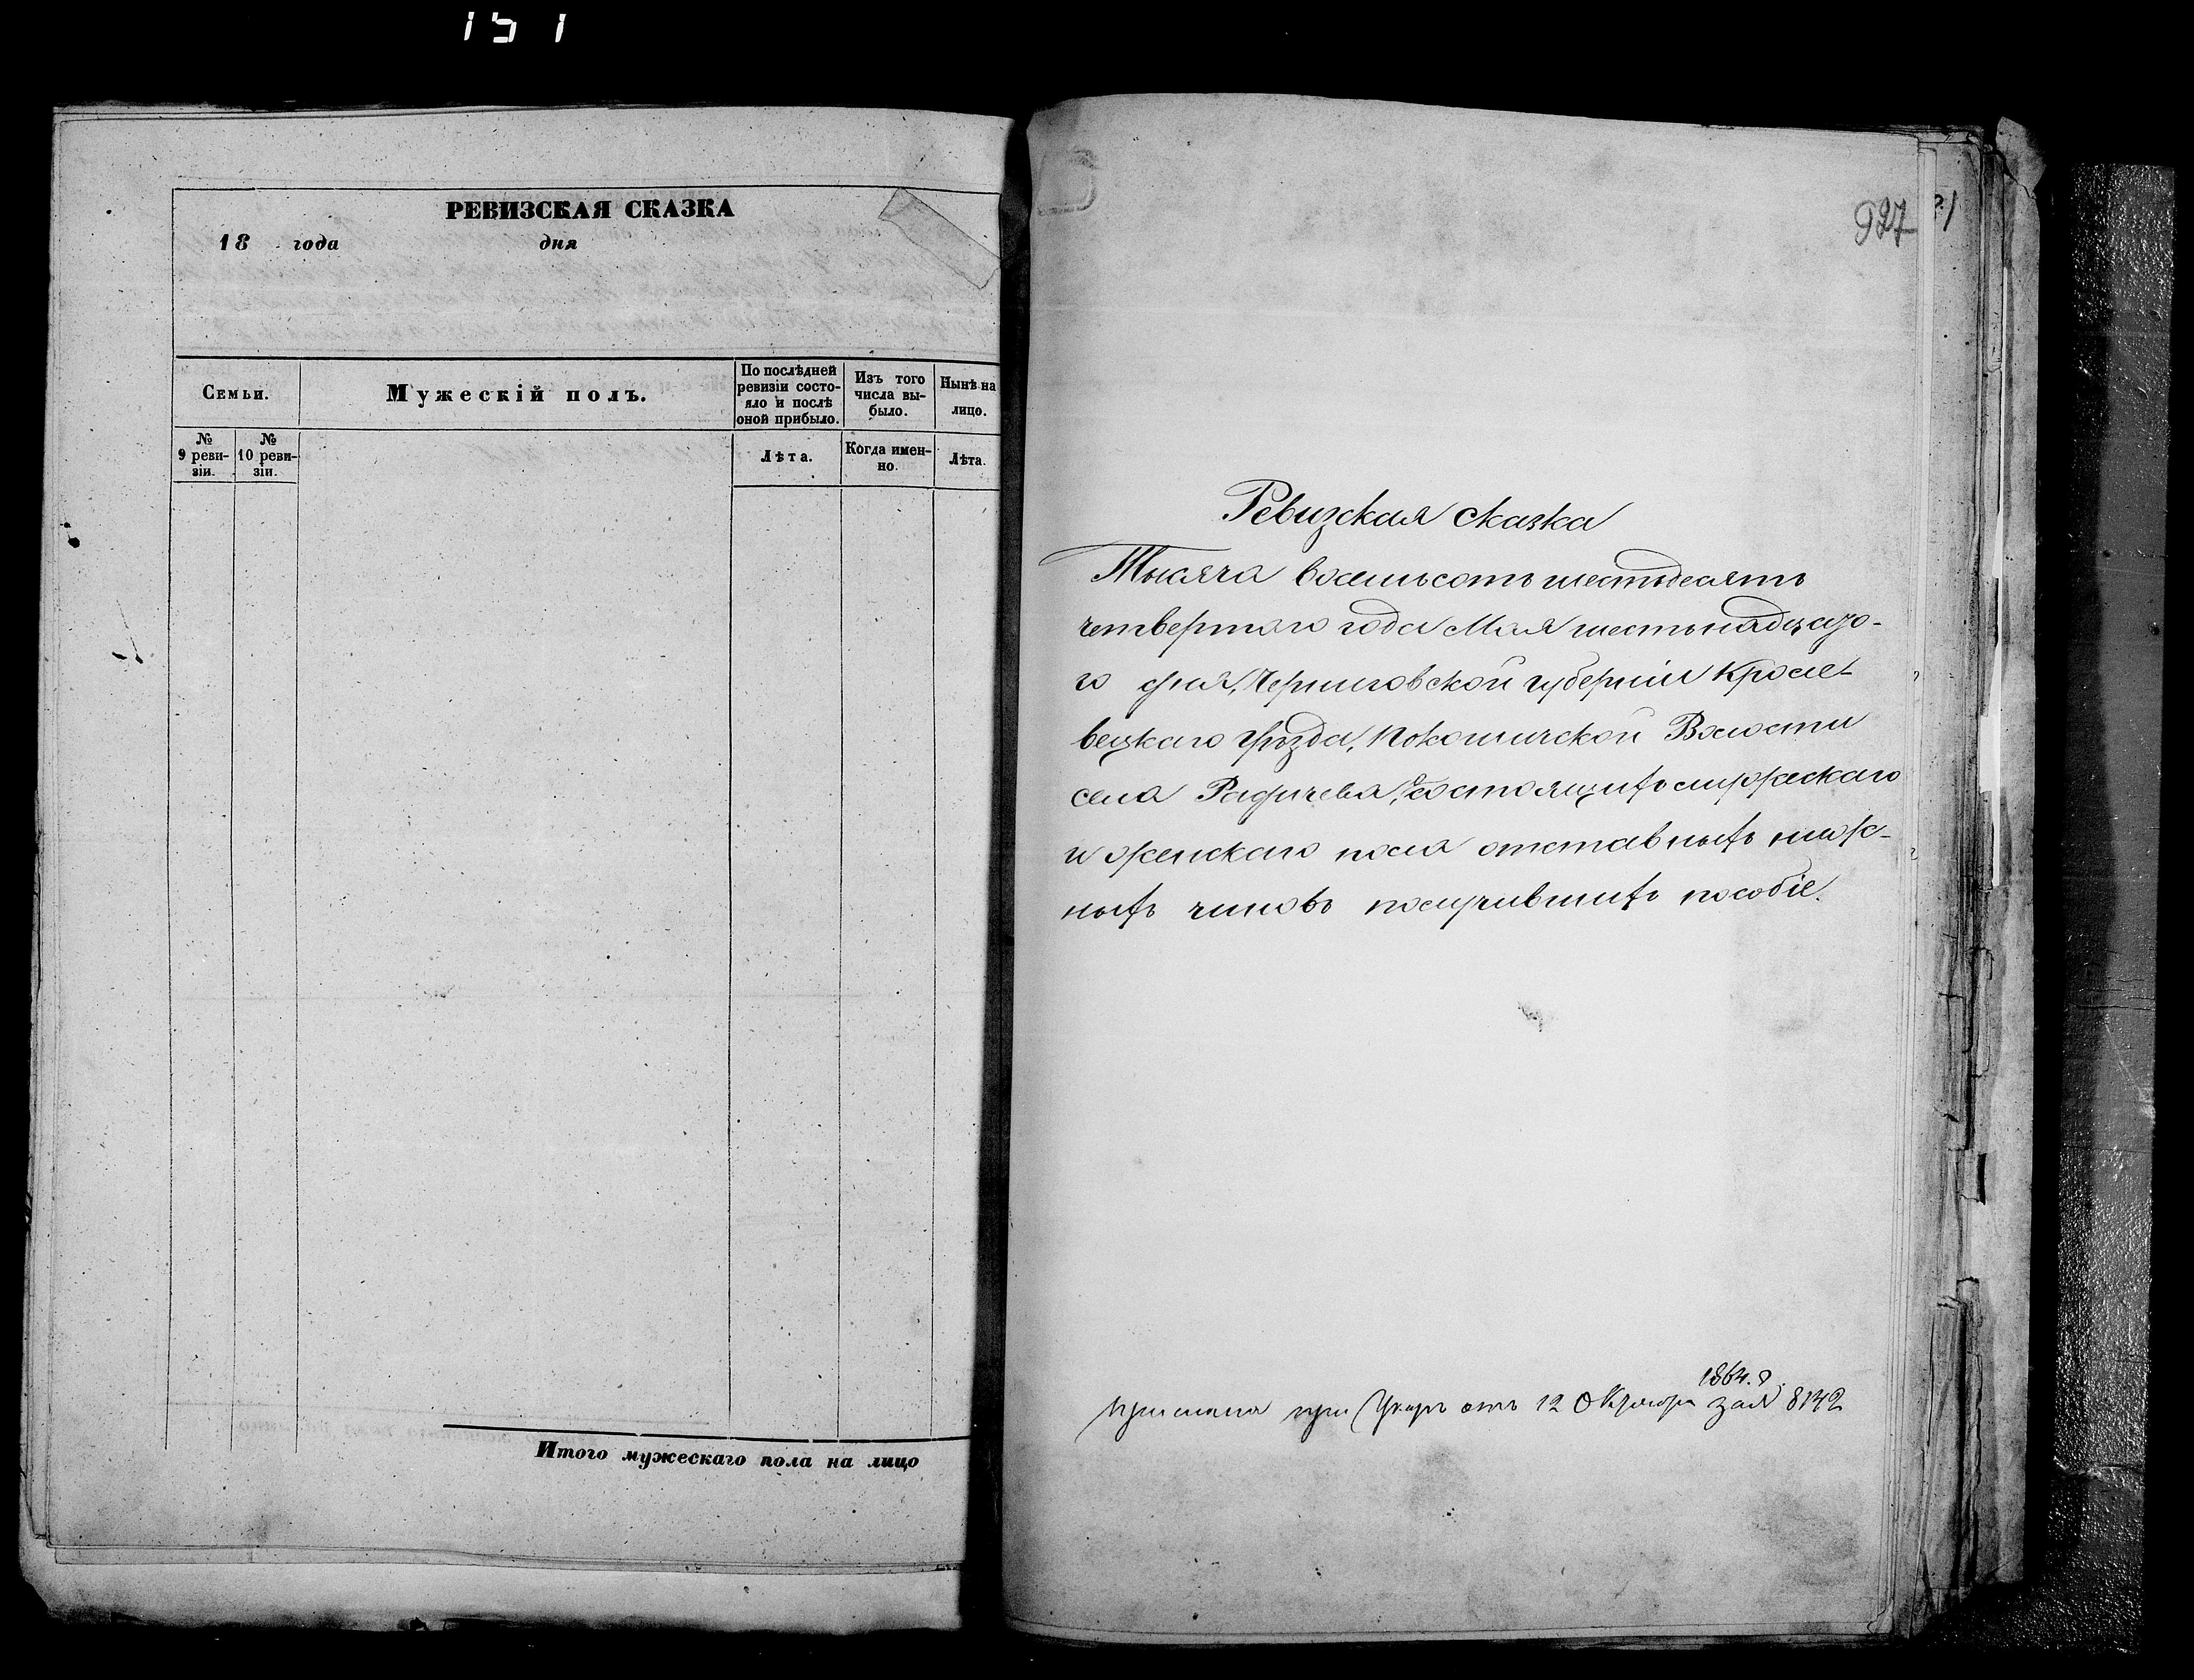 151
РЕВИЗСКАЯ СКАЗКА
18 года дня
Семьи.
Мужескій полъ.
По послѣдней ревизіи состояло и послѣ оной прибыло.
Изъ того числа выбыло.
Нынѣ на лицо.
№ 9 ревизіи.
№ 10 ревизіи.
Лѣта.
Когда именно.
Лѣта.
Итого мужескаго пола на лицо
927
Ревизская сказка
Тысяча восемьсотъ шестьдесятъ
четвертого года Мая шестьнадцато-
го дня, Черниговской губерніи Кроле-
вецкаго Уѣзда, Покошичской Волости
села Радичева, состоящихъ мужескаго
и женскаго пола отставныхъ ниж-
ныхъ чиновъ получившихъ пособіе.
1864. г.
прислана при Указѣ отъ 12 Октября за № 8142